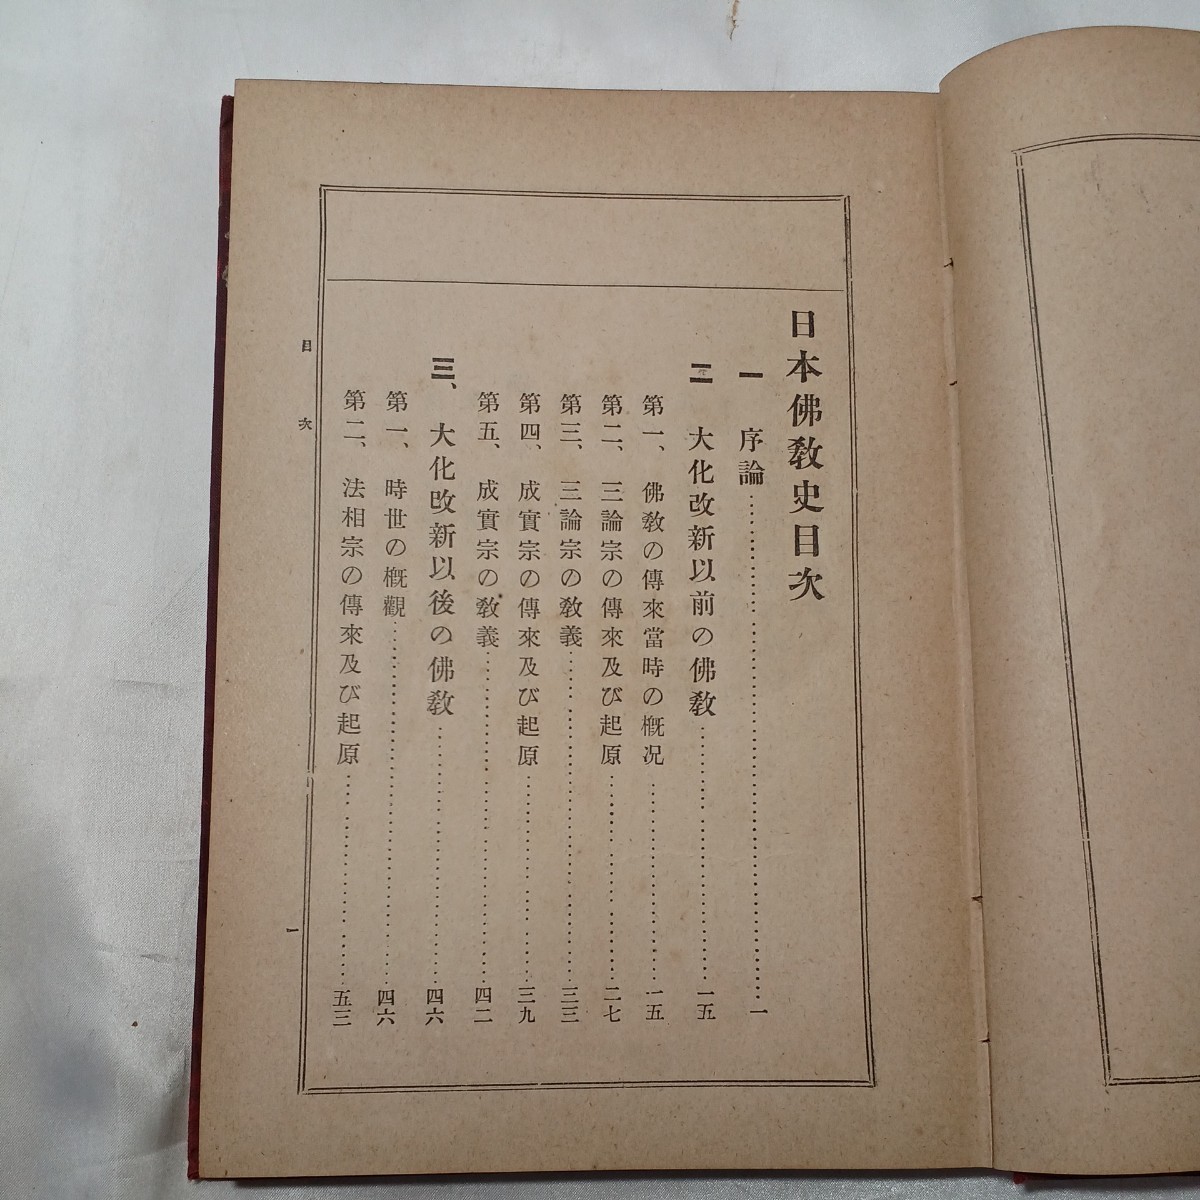 日本佛敎史目次
一 序論……………………一
二 大化改新以前の佛敎……………………一五
第一、佛敎の傳來當時の槪況……………………一五
第二、三論宗の傳來及び起原……………………二七
第三、三論宗の敎義……………………三三
第四、成實宗の傳來及び起原……………………三九
第五、成實宗の敎義……………………四二
三、大化改新以後の佛敎……………………四六
第一、時世の槪觀……………………四六
第二、法相宗の傳來及び起原……………………五三
目次
一